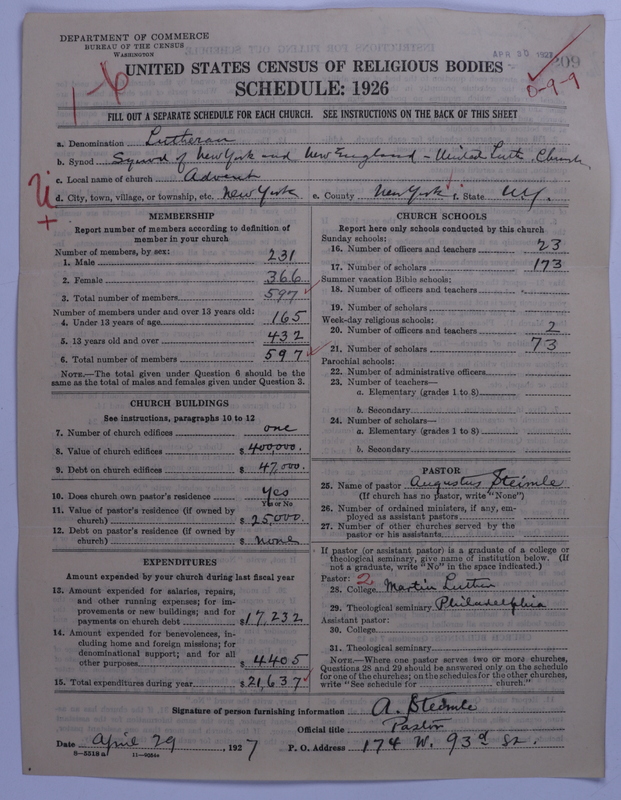 DEPARTMENT OF COMMERCE
BUREAU OF THE CENSUS
WASHINGTON
APR 30 1927
1-6
0-9-9
UNITED STATES CENSUS OF RELIGIOUS BODIES
SCHEDULE: 1926
FILL OUT A SEPARATE SCHEDULE FOR EACH CHURCH. SEE INSTRUCTIONS ON THE BACK OF THIS SHEET
a. Denomination Lutheran
b. Synod Synod of New York and New England - United Luth. Church
c. Local name of church Advent
d. City, town, village, or township, etc. New York e. County New York f. State N.Y.
MEMBERSHIP
Report number of members according to definition of
member in your church
Number of members, by sex:
1. Male 231
2. Female 366
3. Total number of members 597
Number of members under and over 13 years old:
4. Under 13 years of age 165
5. 13 years old and over 432
6. Total number of members 597
NOTE.—The total given under Question 6 should be
same as the total of males and females given under Question 3.
CHURCH BUILDINGS
See instructions, paragraphs 10 to 12
7. Number of church edifices one
8. Value of church edifices $ 400,000.
9. Debt on church edifices $ 47,000.
10. Does church own pastor's residence Yes
Yes or No
11. Value of pastor's residence (if owned by
church) $ 25,000.
12. Debt on pastor's residence (if owned by
church) $ none
EXPENDITURES
Amount expended by your church during last fiscal year
13. Amount expended for salaries, repairs,
and other running expenses; for im-
provements or new buildings; and for
payments on church debt $ 17,232
14. Amount expended for benevolences, in-
cluding home and foreign missions; for
denominational support; and for all
other purposes $ 4405
15. Total expenditures during year $ 21,637
CHURCH SCHOOLS
Report here only schools conducted by this church
Sunday schools:
16. Number of officers and teachers 23
17. Number of scholars 173
Summer vacation Bible schools:
18. Number of officers and teachers
19. Number of scholars
Week-day religious schools:
20. Number of officers and teachers 2
21. Number of scholars 73
Parochial schools:
22. Number of administrative officers
23. Number of teachers—
a. Elementary (grades 1 to 8)
b. Secondary
24. Number of scholars—
a. Elementary (grades 1 to 8)
b. Secondary
PASTOR
25. Name of pastor Augustus Steimle
(If church has no pastor, write "None")
26. Number of ordained ministers, if any, em-
ployed as assistant pastors
27. Number of other churches served by the
pastor or his assistants
If pastor (or assistant pastor) is a graduate of a college or
theological seminary, give name of institution below. (If
not a graduate, write "No" in the space indicated.)
Pastor: 2
28. College Martin Luther
29. Theological seminary Philadelphia
Assistant pastor:
30. College
31. Theological seminary
NOTE.—Where one pastor serves two or more churches,
Questions 28 and 29 should be answered only on the schedule
for one of the churches; on the schedules for the other churches,
write "See schedule for church."
Signature of person furnishing information A. Steimle
Official title Pastor
Date April 29, 1927 P. O. Address 174 W. 93d St.
8-5518a 11-9054a